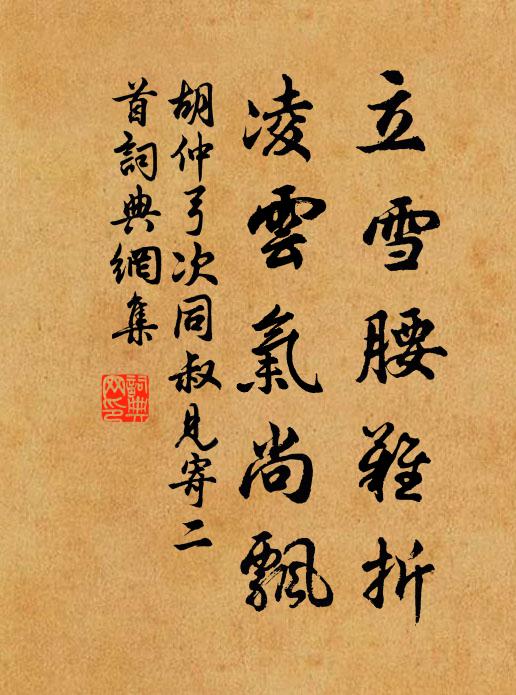 立雪腰難折
凌雲氣尚飄
胡仲弓次同叔見寄二
首詞典網集
詞典網印